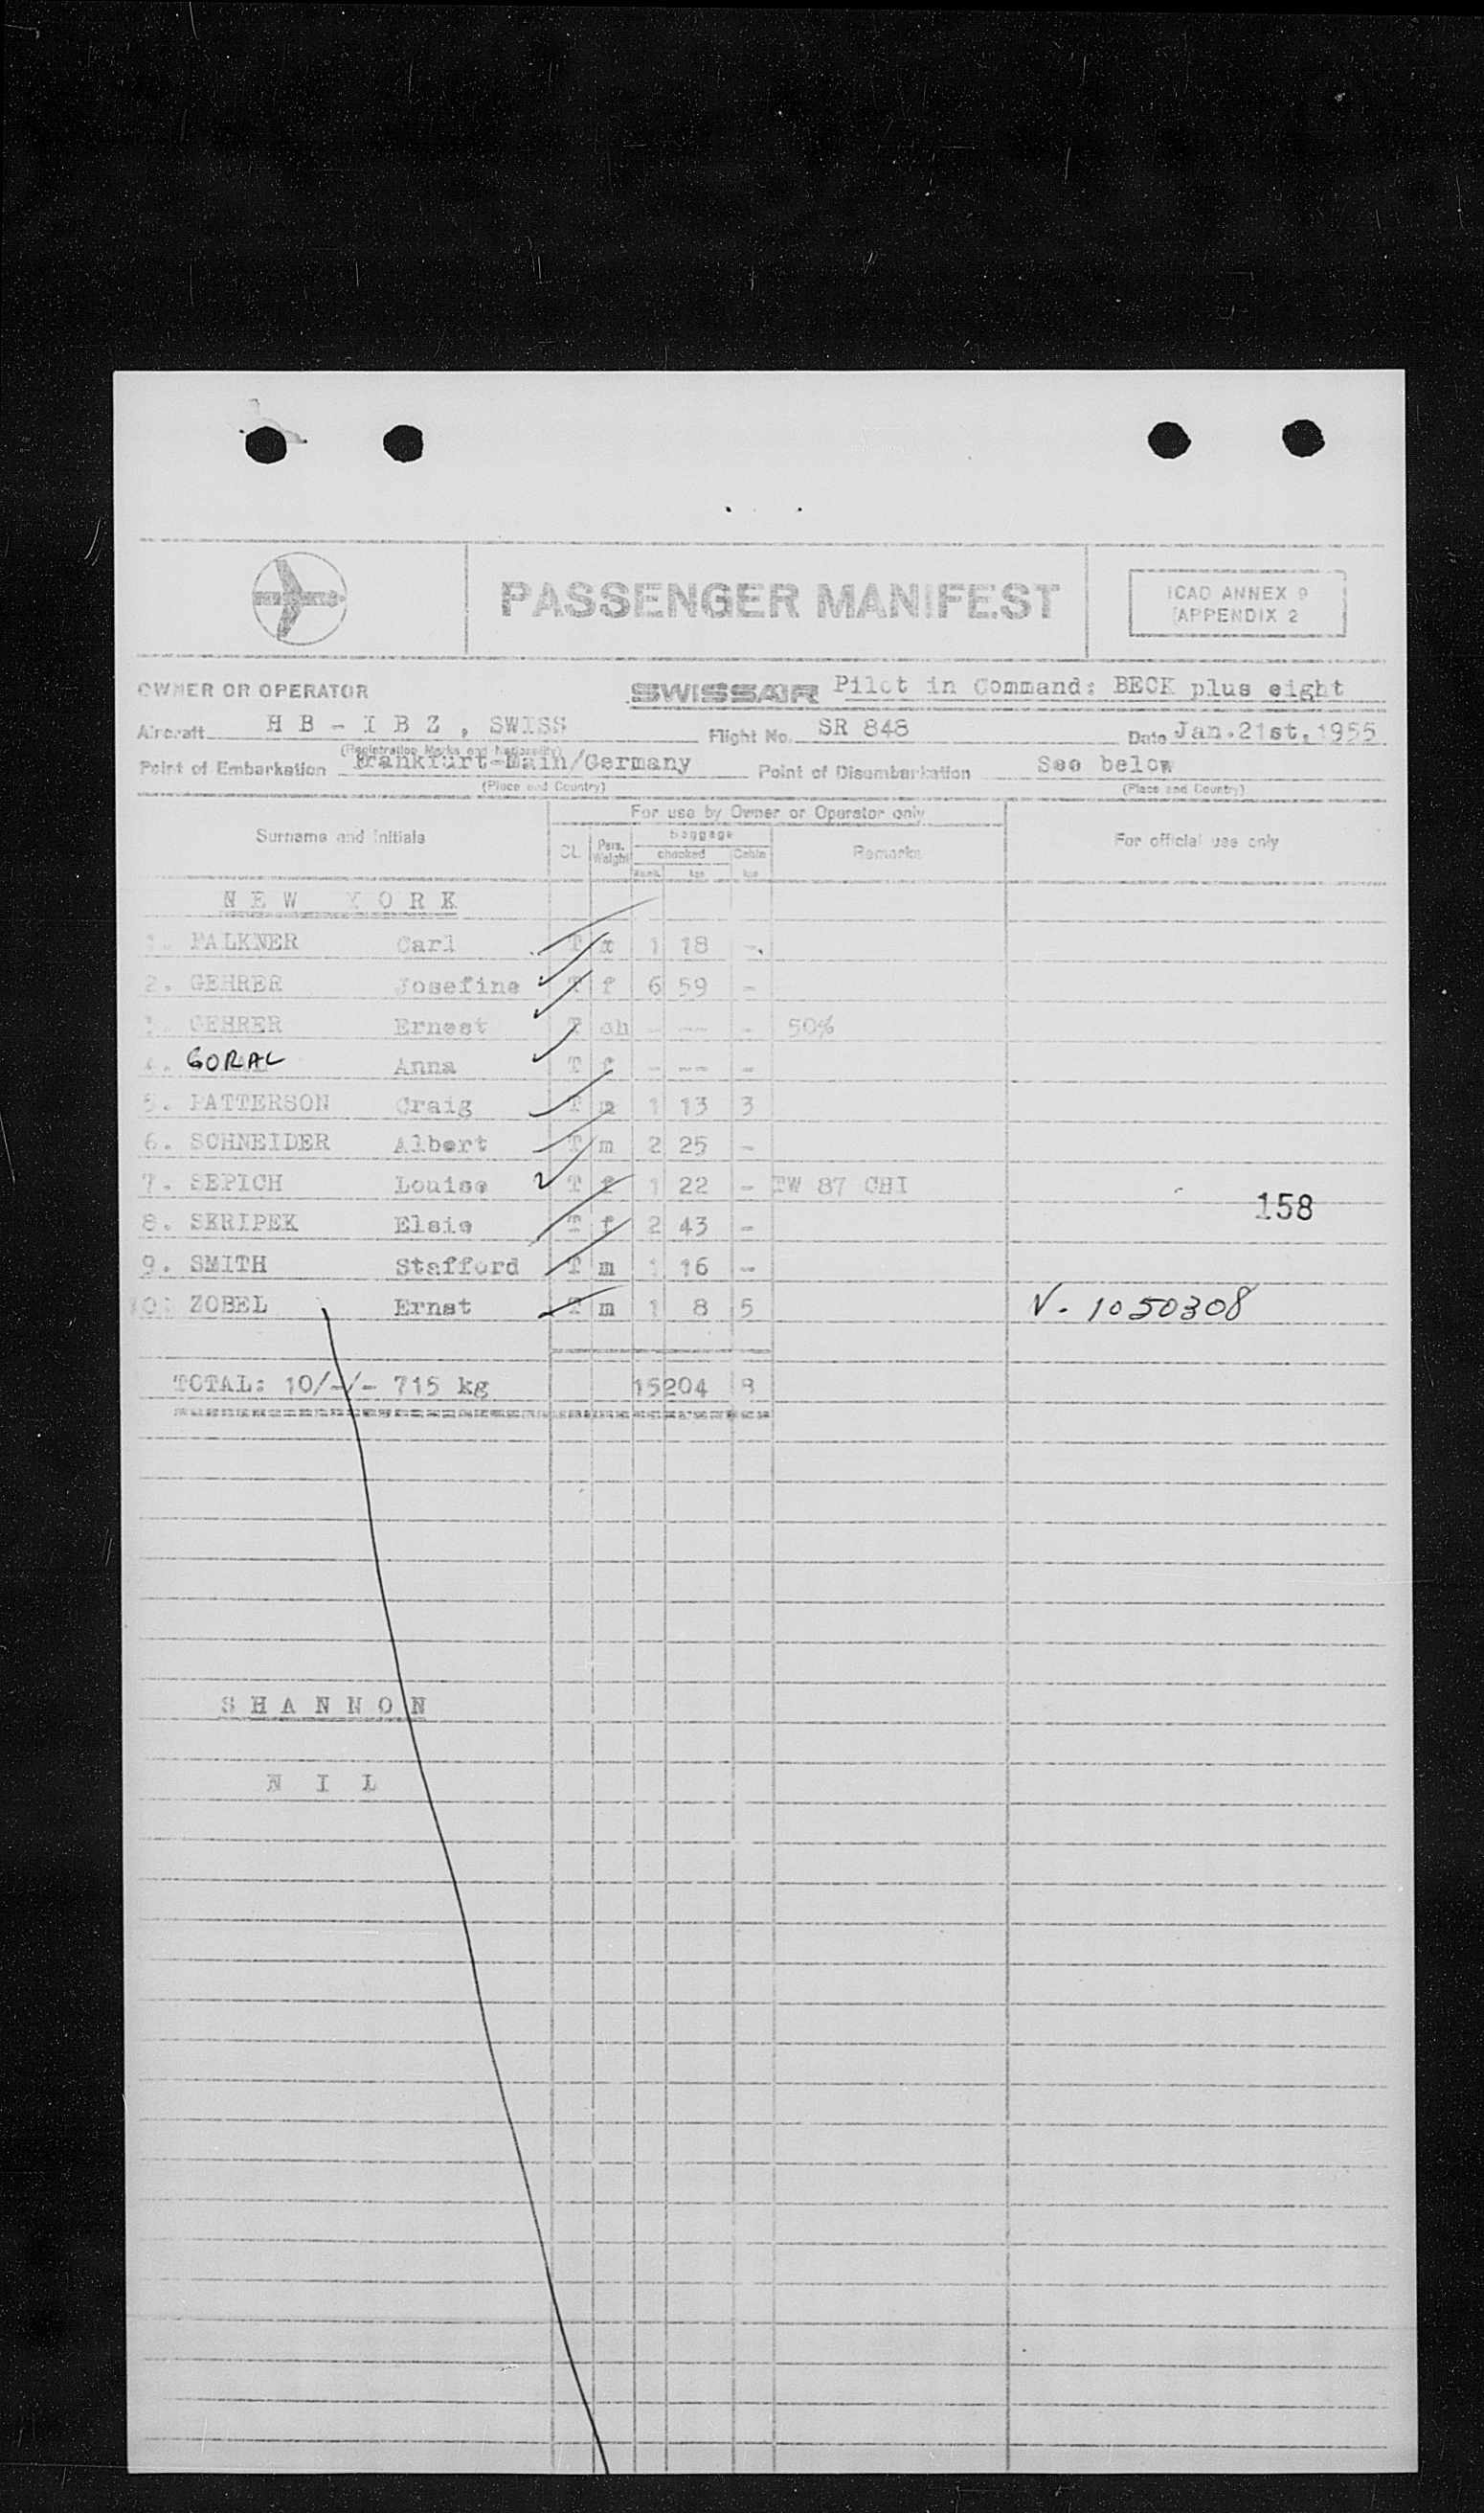 PASSENGER MANIFEST
ICAO ANNEX 9
APPENDIX 2
OWNER OR OPERATOR SWISSAIR Pilot in Command: BECK plus eight
Aircraft H B - I B Z , SWISS Flight No. SR 848 Date Jan.21st,1955
(Registration Marks and Nationality)
Point of Embarkation Frankfurt-Main/Germany Point of Disembarkation See below
(Place and Country) (Place and Country)
For use by Owner or Operator only
Surname and Initials CL Pers. Weight baggage checked Cabin Remarks For official use only
N E W Y O R K
1. FALKNER Carl T m 1 18 -
2. GEHRER Josefine T f 6 59 -
3. GEHRER Ernest T ch - --- - 50%
4. GORAL Anna T f - --- -
5. PATTERSON Craig T m 1 13 3
6. SCHNEIDER Albert T m 2 25 -
7. SEPICH Louise T f 1 22 - TW 87 CHI
158
8. SKRIPEK Elsie T f 2 43 -
9. SMITH Stafford T m 1 16 -
10. ZOBEL Ernst T m 1 8 5 V- 1050308
TOTAL: 10/-/- 715 kg 15 204 8
S H A N N O N
N I L